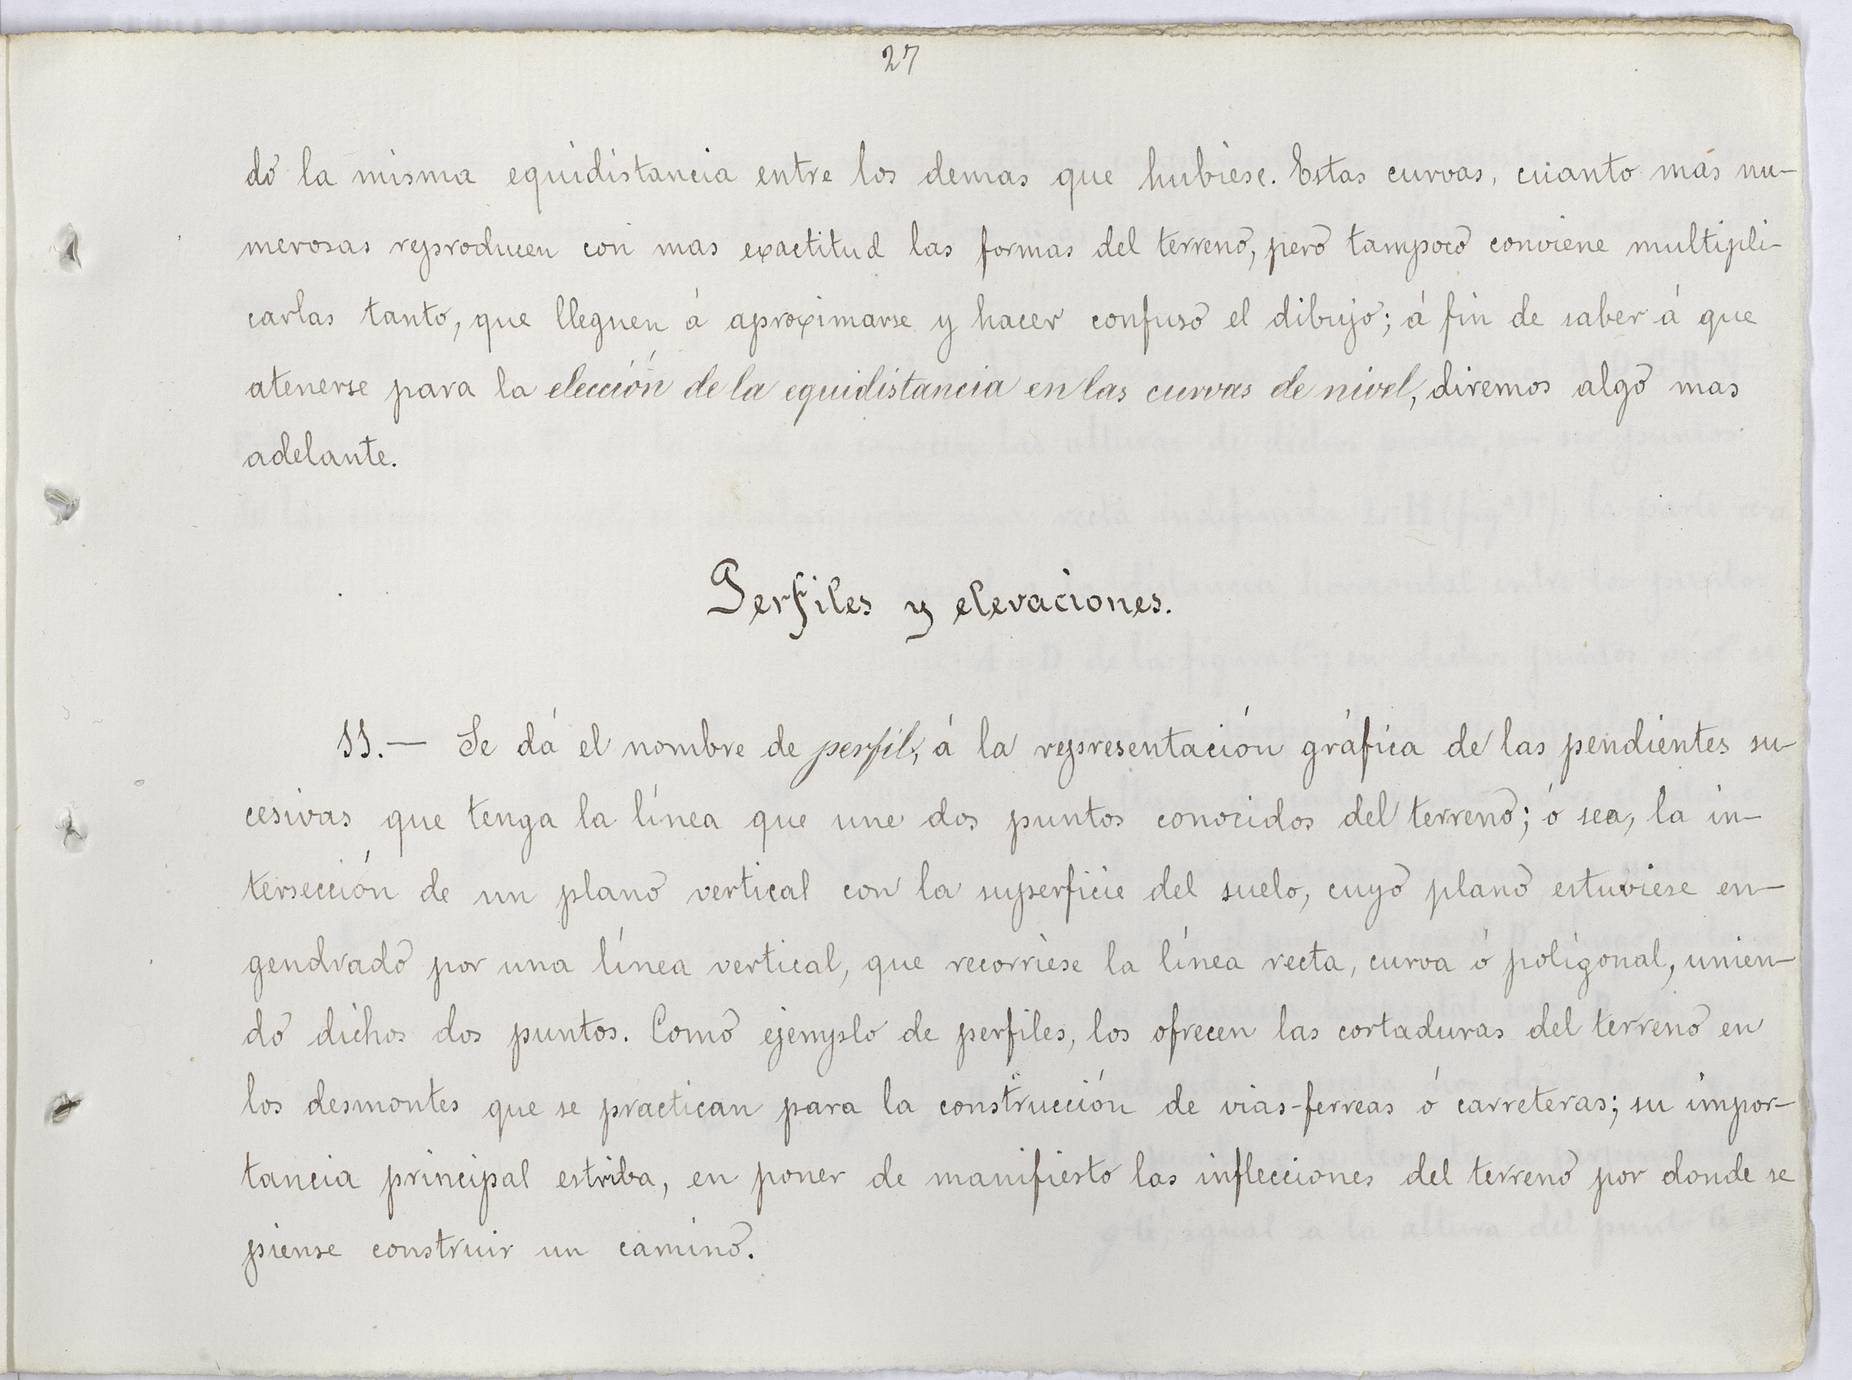 27
do la misma equidistancia entre los demas que hubiese. Estas curvas, cuanto mas nu-
merosas reproducen con mas exactitud las formas del terreno, pero tampoco conviene multipli-
carlas tanto, que lleguen á aproximarse y hacer confuso el dibujo; á fin de saber á que
atenerse para la elección de la equidistancia en las curvas de nivel, diremos algo mas
adelante.
Perfiles y elevaciones.
11.— Se dá el nombre de perfil, á la representación gráfica de las pendientes su-
cesivas que tenga la línea que une dos puntos conocidos del terreno; ó sea, la in-
tersección de un plano vertical con la superficie del suelo, cuyo plano estuviese en-
gendrado por una línea vertical, que recorriese la línea recta, curva ó poligonal, unien-
do dichos dos puntos. Como ejemplo de perfiles, los ofrecen las cortaduras del terreno en
los desmontes que se practican para la construcción de vias-ferreas ó carreteras; su impor-
tancia principal estriba, en poner de manifiesto las inflecciones del terreno por donde se
piense construir un camino.